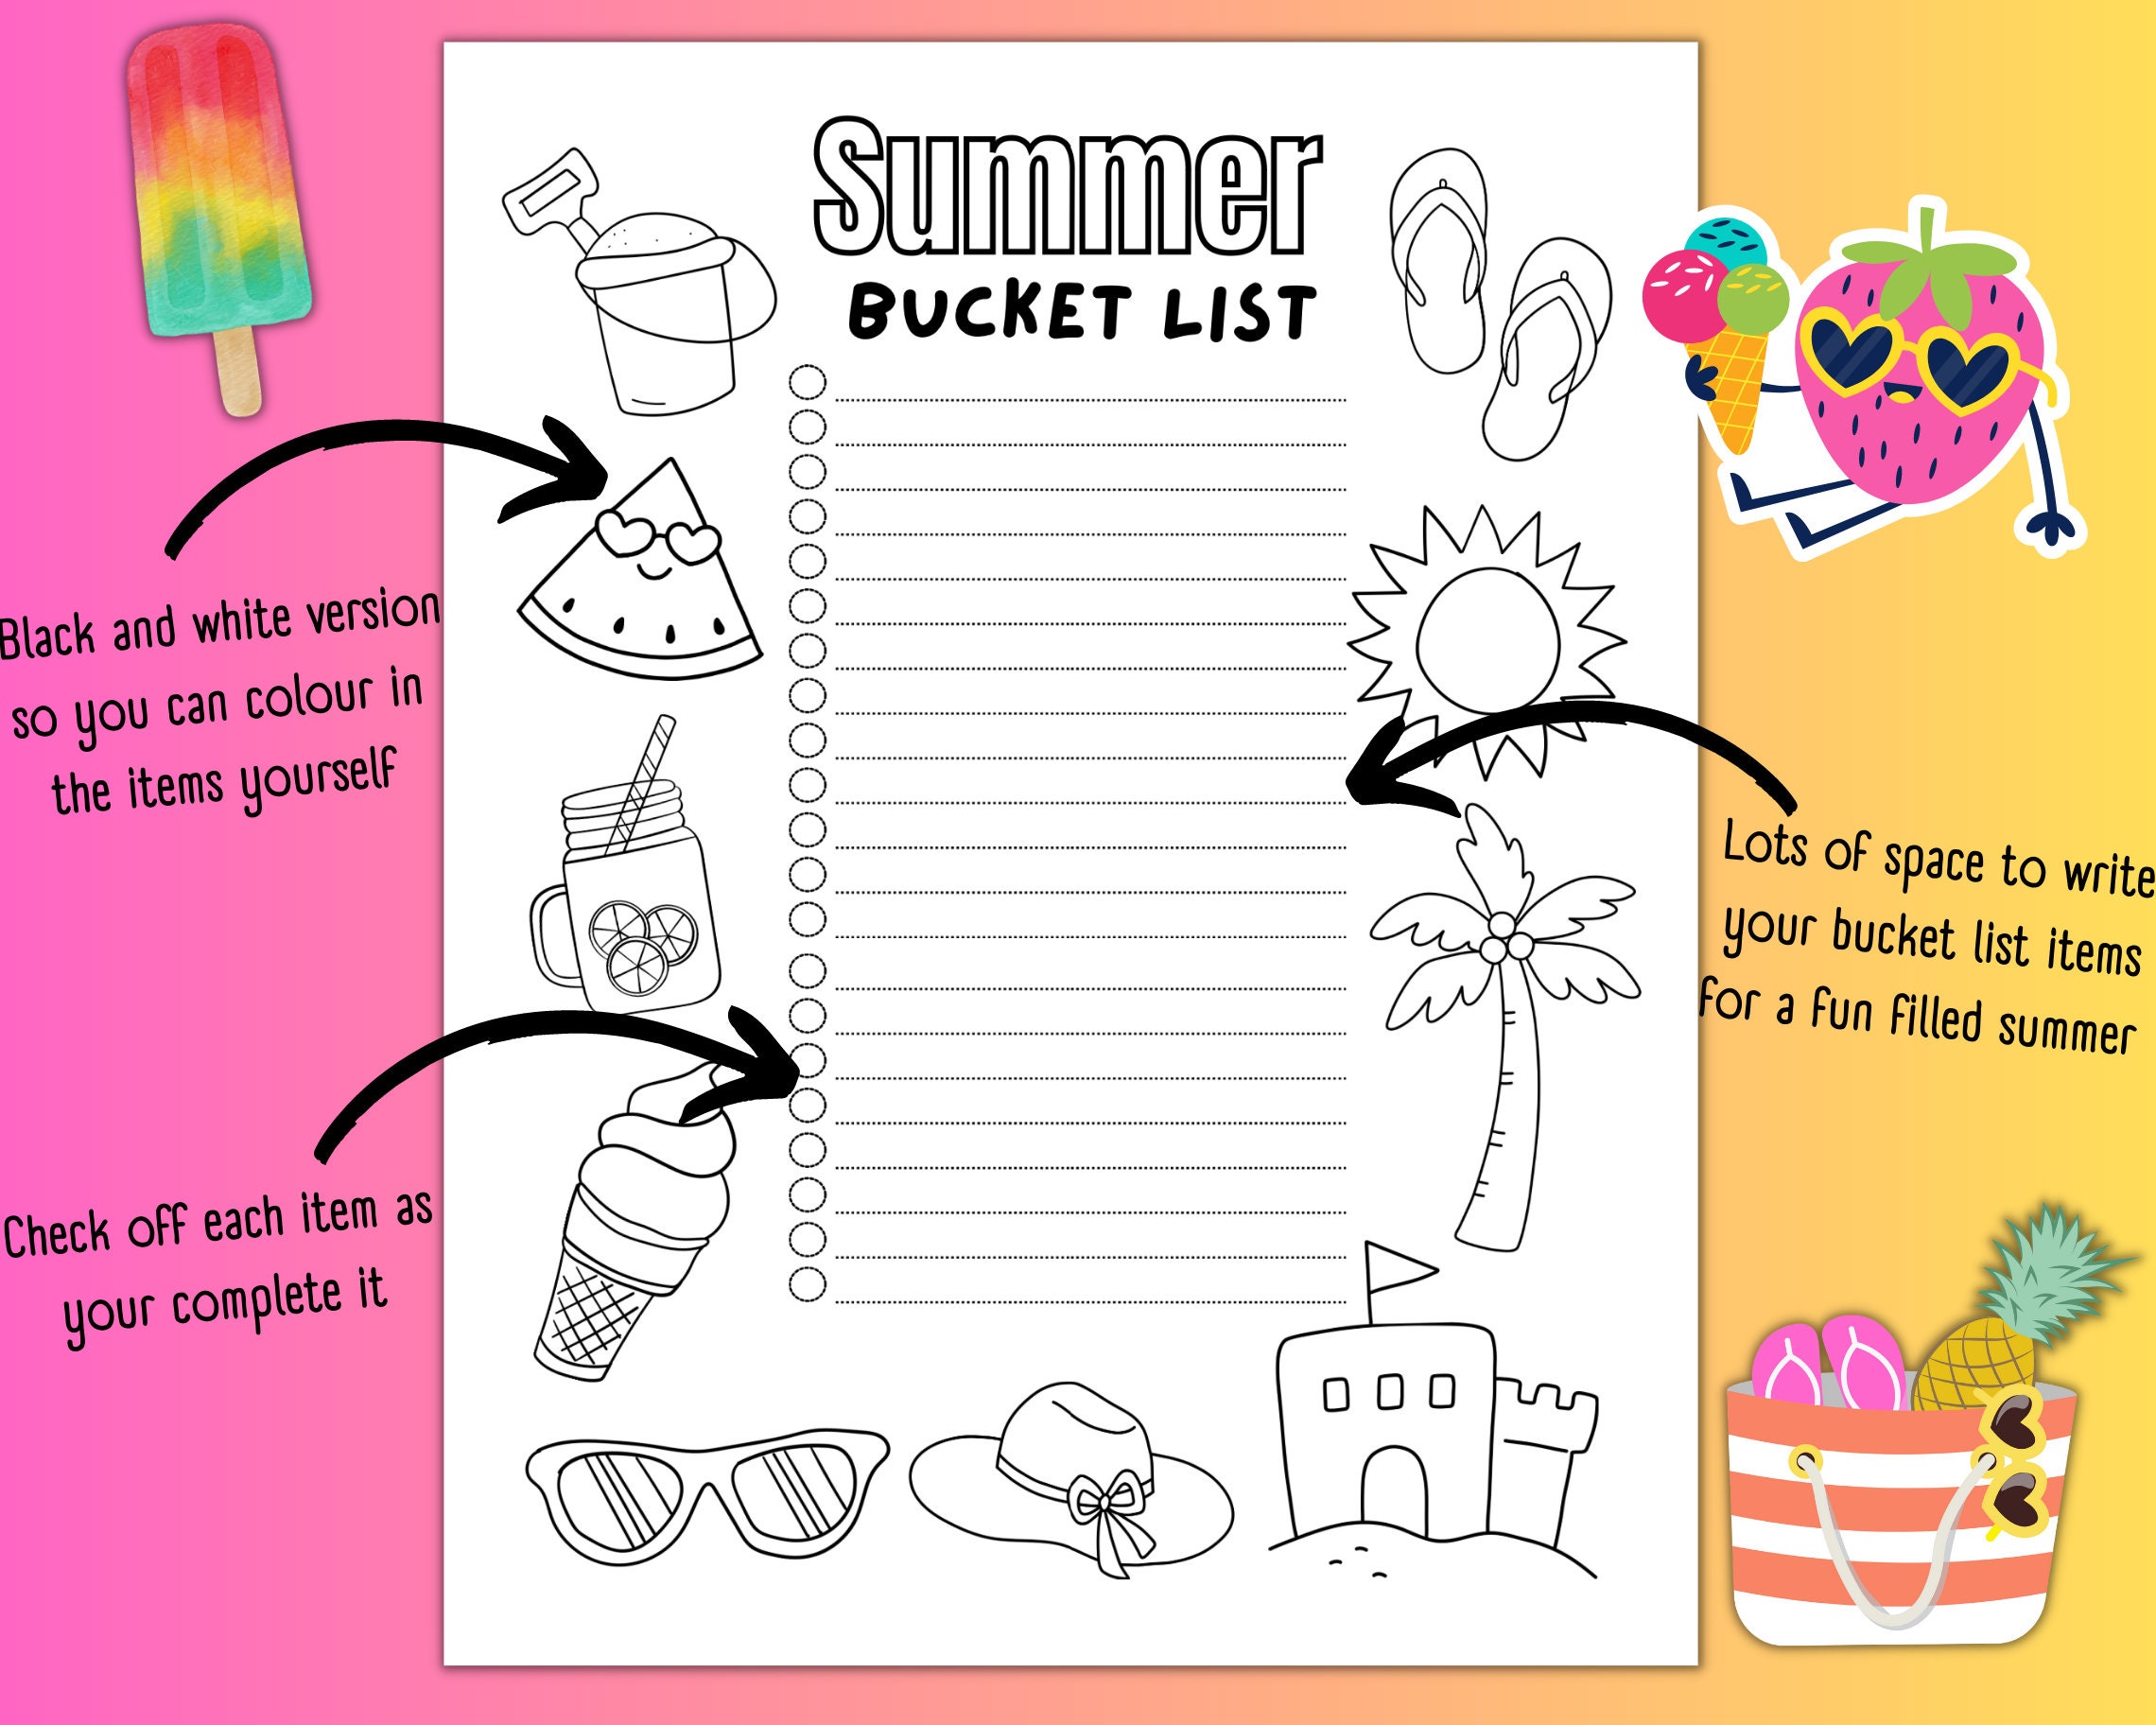 Summer
BUCKET LIST
Black and white version
so you can colour in
the items yourself
Lots of space to write
your bucket list items
for a fun filled summer
Check off each item as
your complete it